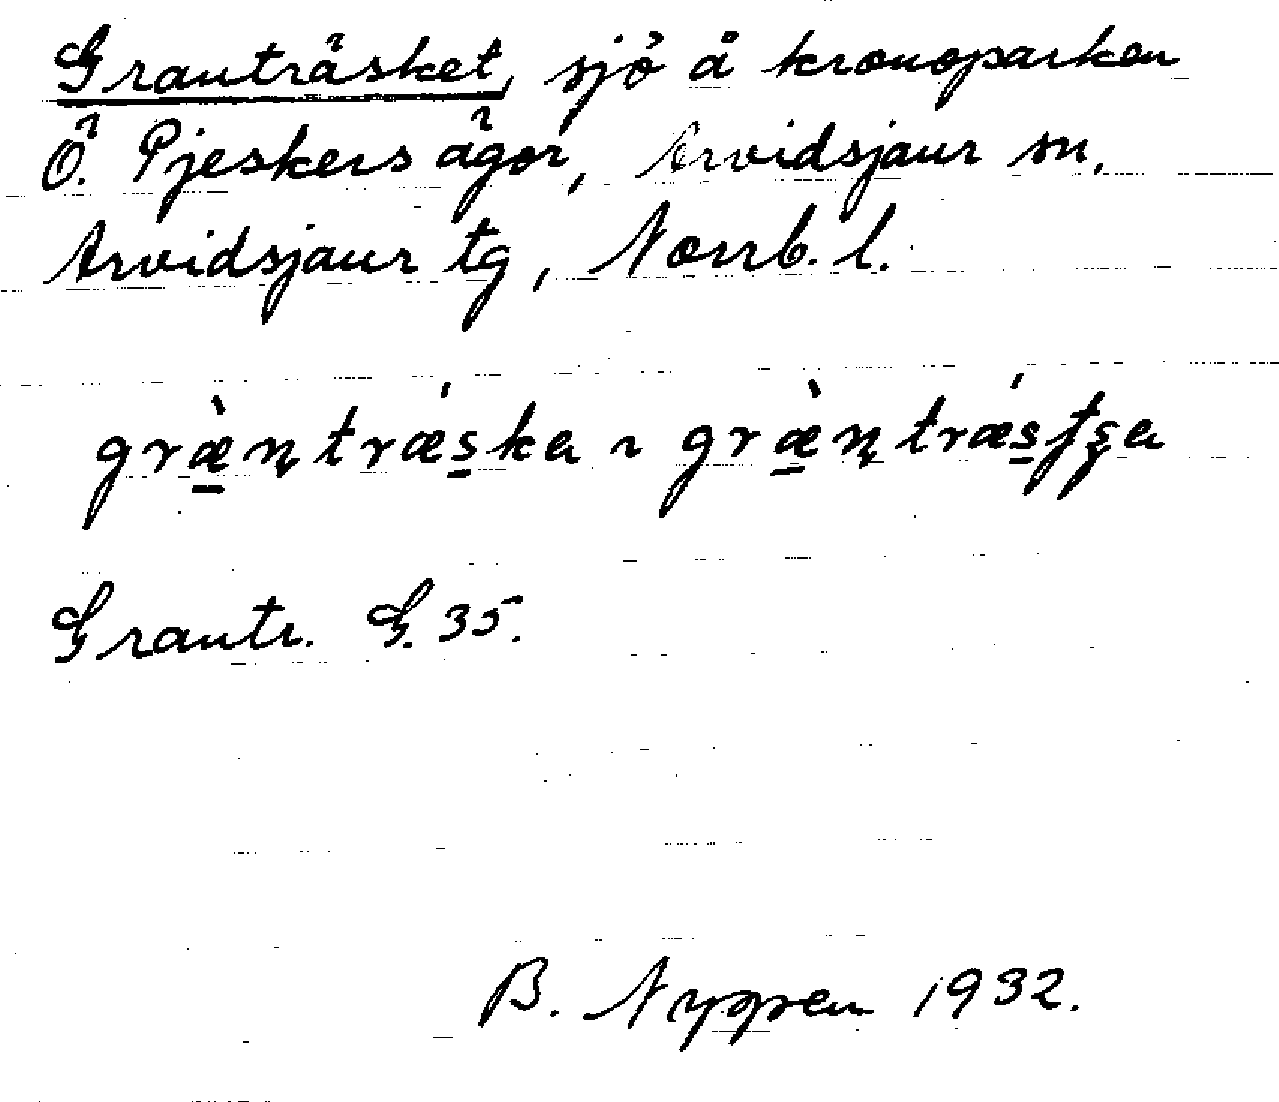 Granträsket, sjö å kronoparken
Ö. Pjeskers ägor, Arvidsjaur sn,
Arvidsjaur tg, Norrb. l.
græ̀n̨trǽska ~ græ̀n̨trǽstşa
Grantr. G. 35.
B. Nygren 1932.